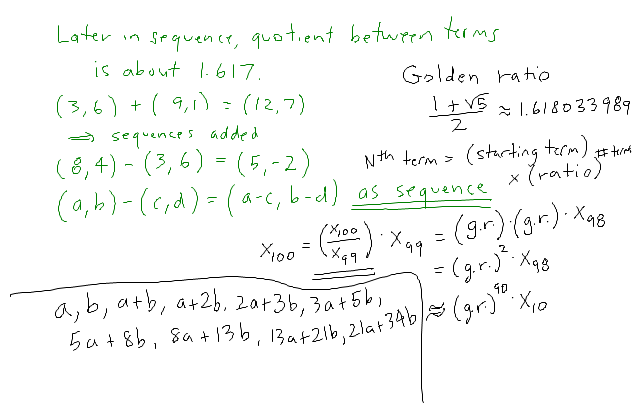 Later in sequence, quotient between terms
is about 1.617.
(3,6) + (9,1) = (12,7)
⟹ sequences added
(8,4) - (3,6) = (5,-2)
(a,b) - (c,d) = (a-c, b-d) as sequence
Golden ratio
(1+√5)/2 ≈ 1.618033989
Nth term = (starting term)
× (ratio)^# term
X_100 = (X_100/X_99) · X_99 = (g.r.) · (g.r.) · X_98
= (g.r.)^2 · X_98
≈ (g.r.)^90 · X_10
a, b, a+b, a+2b, 2a+3b, 3a+5b,
5a+8b, 8a+13b, 13a+21b, 21a+34b